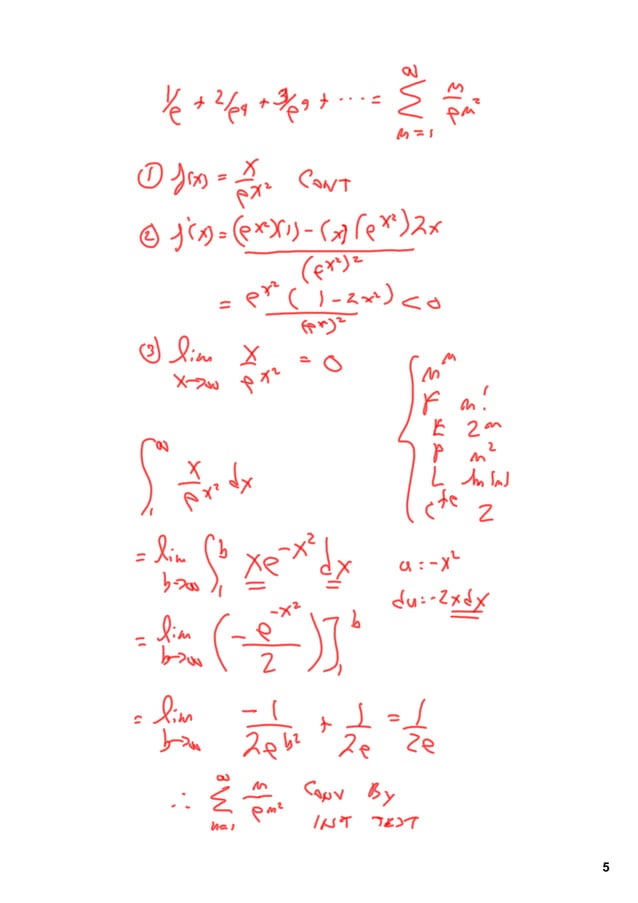 1/e + 2/e⁴ + 3/e⁹ + ⋯ = ∑_{n=1}^{∞} n/e^{n²}
① f(x) = x/e^{x²} CONT
② f'(x) = ((e^{x²})(1) - (x)(e^{x²})2x)/(e^{x²})²
= e^{x²}(1 - 2x²)/(e^{x²})² < 0
③ lim_{x→∞} x/e^{x²} = 0
n^n
F n!
E 2^n
P n²
L ln(n)
C^{te} 2
∫_1^∞ x/e^{x²} dx
= lim_{b→∞} ∫_1^b xe^{-x²} dx u = -x²
du = -2xdx
= lim_{b→∞} (-e^{-x²}/2)]_1^b
= lim_{b→∞} -1/(2e^{b²}) + 1/(2e) = 1/(2e)
∴ ∑_{n=1}^{∞} n/e^{n²} CONV BY
INT TEST
5